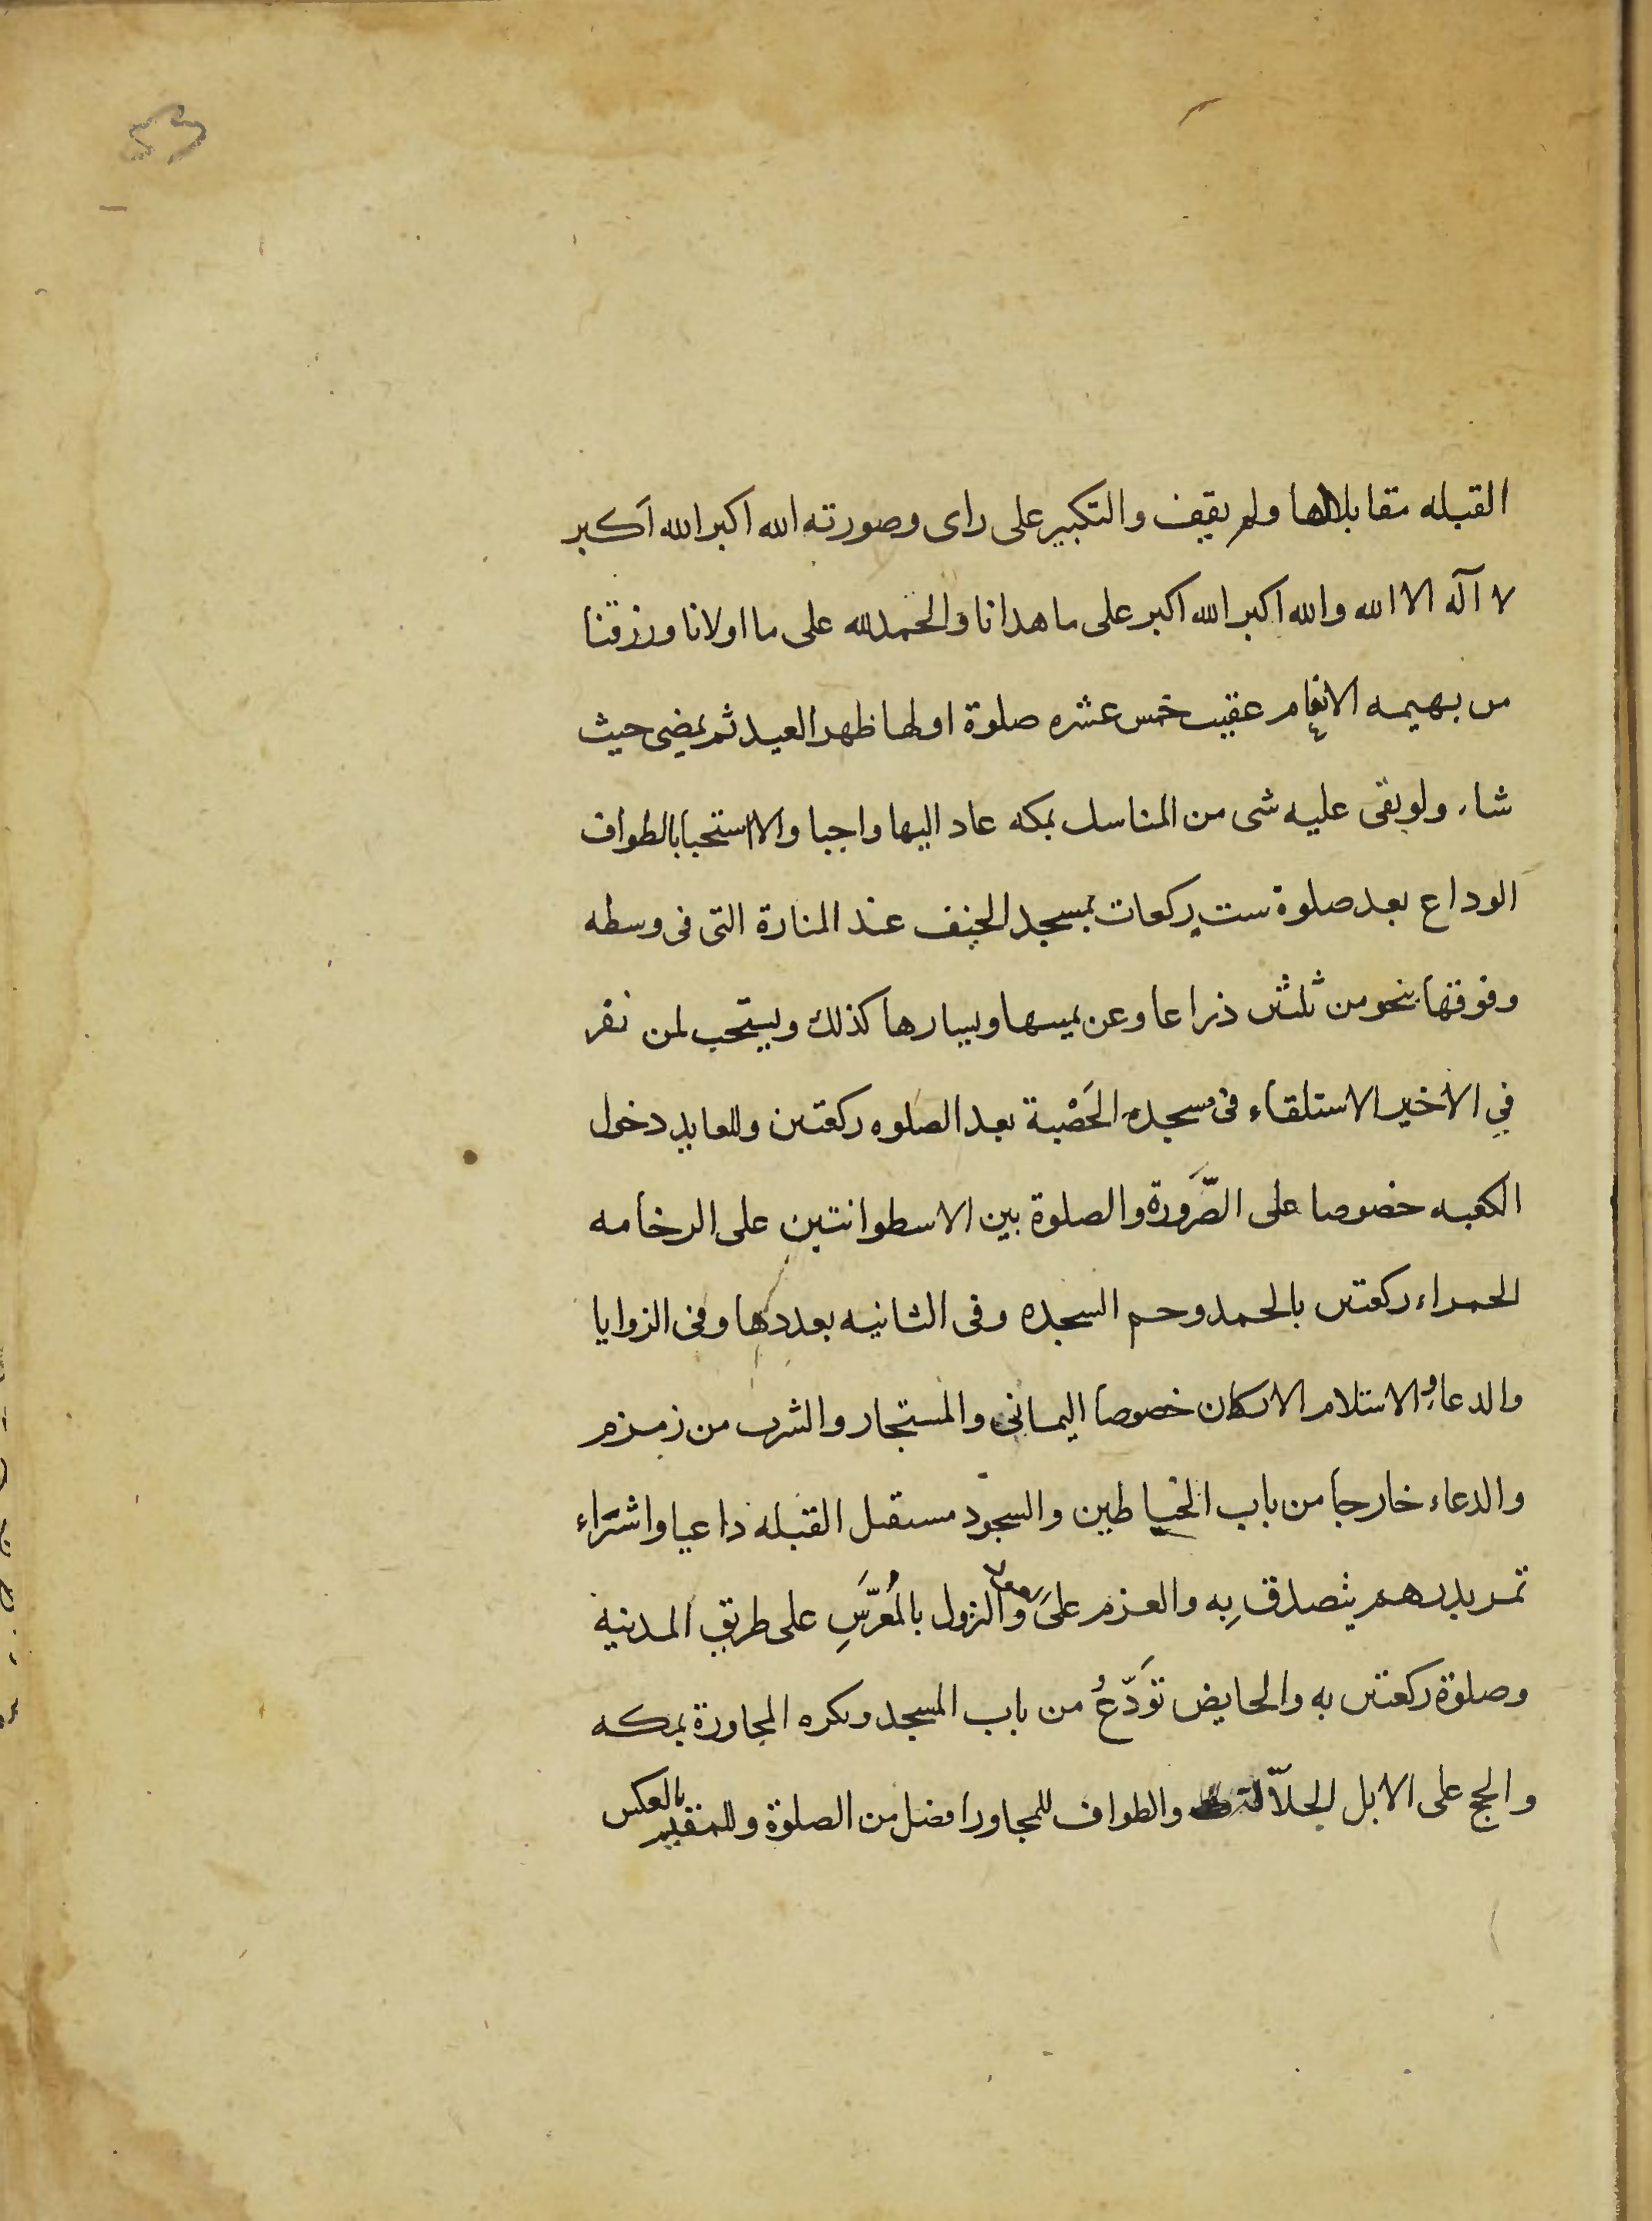 53
القبله مقابلا لها ولم يقف والتكبير على راى وصورته الله اكبر الله اكبر
لا آله الا الله والله اكبر الله اكبر على ما هدانا والحمدلله على ما اولانا ورزقنا
من بهيمه الانعام عقيب خمس عشره صلوة اولها ظهر العيد ثم يمضى حيث
شاء ولو بقى عليه شى من المناسك بمكه عاد اليها واجبا والا استحبابا لطواف
الوداع بعد صلوة ست ركعات بمسجد الخيف عند المنارة التى فى وسطه
وفوقها بنحو من ثلثين ذراعا وعن يمينها ويسارها كذلك ويستحب لمن نفر
فى الاخير الاستلقاء فى مسجد الحَصْبة بعد الصلوه ركعتين وللعايد دخول
الكعبه خصوصا على الصَّرورة والصلوة بين الاسطوانتين على الرخامه
الحمراء ركعتين بالحمد وحم السجده وفى الثانيه بعددها وفى الزوايا
والدعا والاستلام الاركان خصوصا اليمانى والمستجار والشرب من زمزم
والدعاء خارجا من باب الحناطين والسجود مستقبل القبله داعيا واشتراء
تمر بدرهم يتصدق بِه والعزم على والنزول بالمُعَرَّسِ على طريق المدينه
وصلوة ركعتين به والحايض تَوَدّعُ من باب المسجد ويكره المجاورة بمكه
والحج على الابل الجلاّلة والطواف للمجاور افضل من الصلوة وللمقيم بالعكس